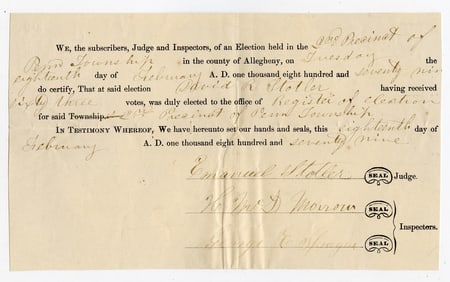 We, the subscribers, Judge and Inspectors, of an Election held in the 2nd Precinct of
Penn Township in the county of Allegheny, on Tuesday the
eighteenth day of February A. D. one thousand eight hundred and seventy nine
do certify, That at said election David R Stotler having received
sixty three votes, was duly elected to the office of Register of election
for said Township 2nd Precinct of Penn Township
In Testimony Whereof, We have hereunto set our hands and seals, this eighteenth day of
February A. D. one thousand eight hundred and seventy nine.
Emanuel Stotler SEAL Judge.
Morrow SEAL
Inspectors.
George SEAL